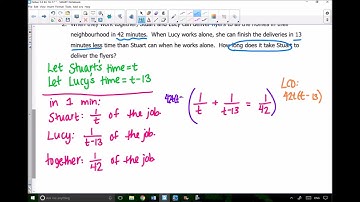 2. When they work together, Stuart and Lucy can deliver flyers to all the homes in their
neighbourhood in 42 minutes. When Lucy works alone, she can finish the deliveries in 13
minutes less time than Stuart can when he works alone. How long does it take Stuart to
deliver the flyers?
Let Stuart's time = t
Let Lucy's time = t-13
in 1 min:
Stuart: 1/t of the job.
Lucy: 1/(t-13) of the job.
together: 1/42 of the job
(1/t + 1/(t-13) = 1/42)
LCD:
42t(t-13)